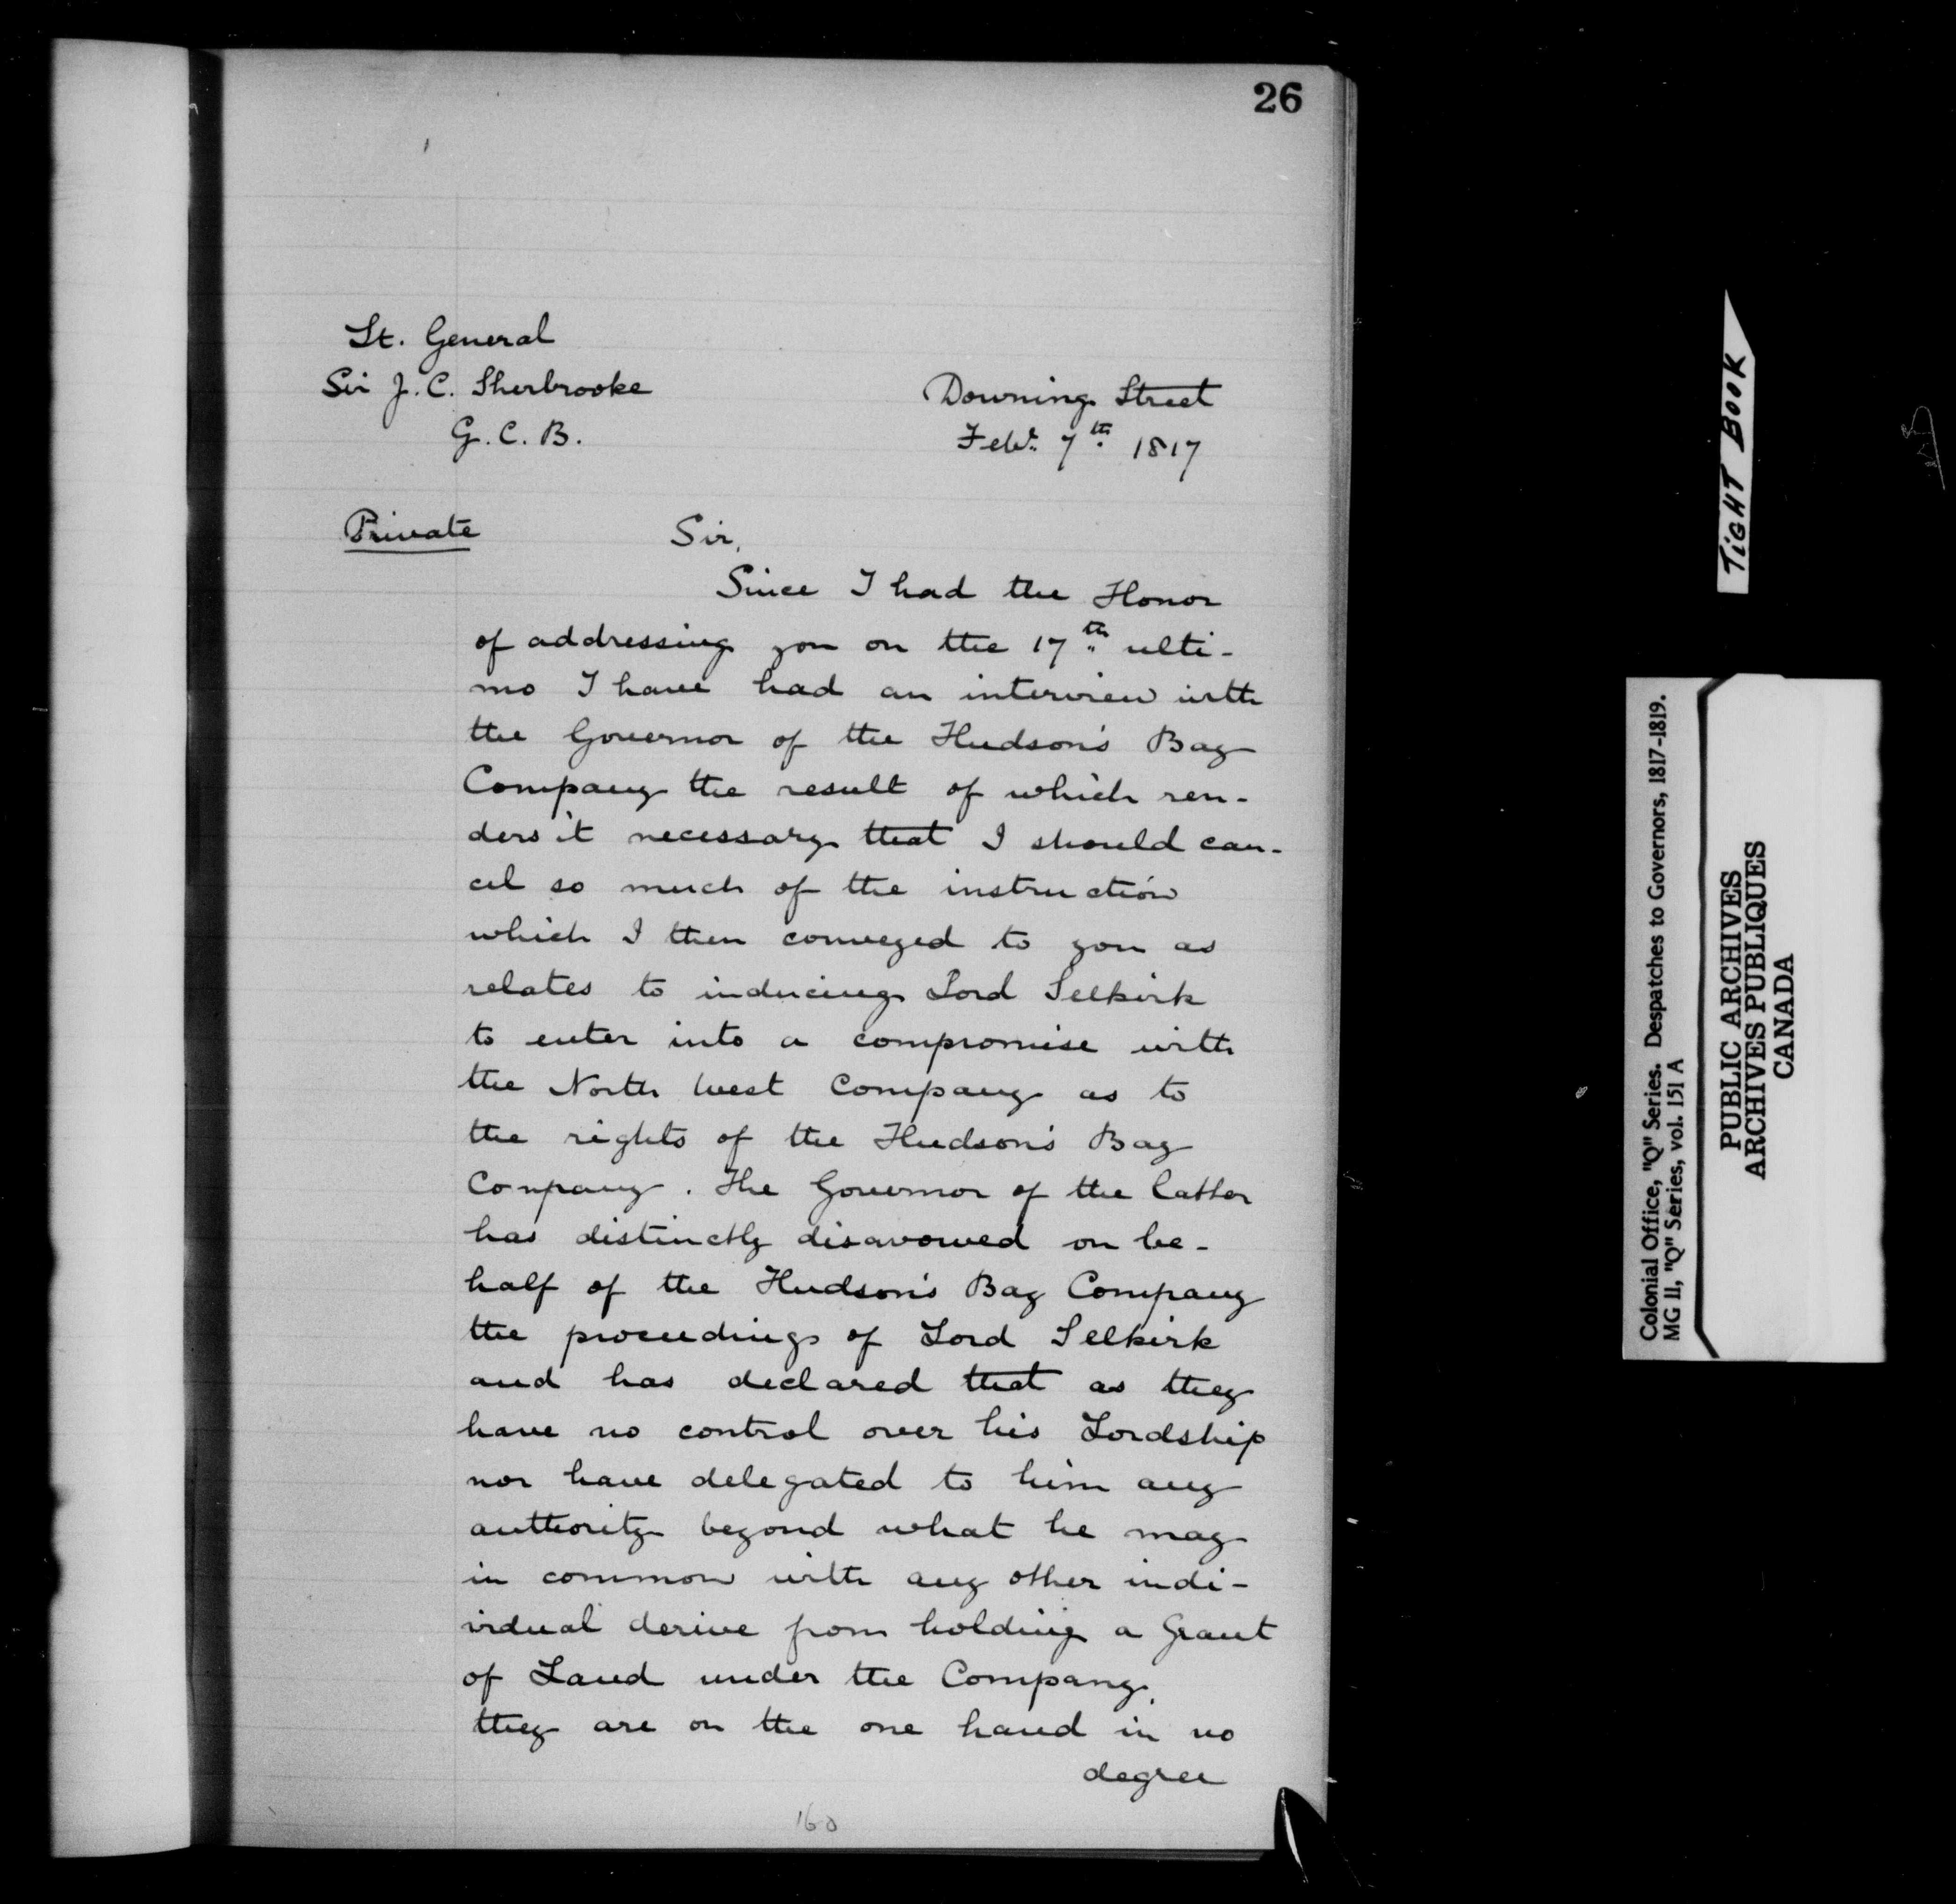 26
Lt. General
Sir J. C. Sherbrooke
G. C. B.
Downing Street
Feb.y 7th 1817
Private
Sir,
Since I had the Honor
of addressing you on the 17th ulti-
mo I have had an interview with
the Governor of the Hudson's Bay
Company the result of which ren-
ders it necessary that I should can-
cel so much of the instruction
which I then conveyed to you as
relates to inducing Lord Selkirk
to enter into a compromise with
the North West Company as to
the rights of the Hudson's Bay
Company. The Governor of the latter
has distinctly disavowed on be-
half of the Hudson's Bay Company
the proceedings of Lord Selkirk
and has declared that as they
have no control over his Lordship
nor have delegated to him any
authority beyond what he may
in common with any other indi-
vidual derive from holding a Grant
of Land under the Company,
they are on the one hand in no
degree
160
TIGHT BOOK
Colonial Office, "Q" Series. Despatches to Governors, 1817-1819.
MG 11, "Q" Series, vol. 151 A
PUBLIC ARCHIVES
ARCHIVES PUBLIQUES
CANADA